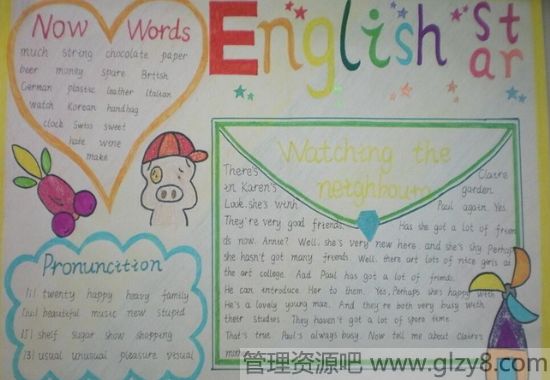 Now Words
much string chocolate paper
beer money spare British
German plastic leather Italian
watch Korean handbag
clock Swiss sweet
hate wine
make
English star
Watching the
neighbours
There's Claire
in Karen's garden.
Look, she's with Paul again. Yes,
They're very good friends. Has she got a lot of frien
ds now, Annie? Well, she's very new here and she's shy. Perhap
she hasn't got many friends. Well, there art lots of nice girls at
the art college. Aad Paul has got a lot of friends.
He can introduce Her to them. Yes, Perhaps she's happy with
He's a lovely young man. And they're both very busy with
their studies They haven't got a lot of spare time.
That's true. Paul's always busy. Now tell me about Claire's
Pronunction
[i] twenty happy heavy family
beautiful music new stupid
[ʃ] shelf sugar show shopping
[ʒ] usual unusual pleasure visual
管理资源吧 www.glzy8.com